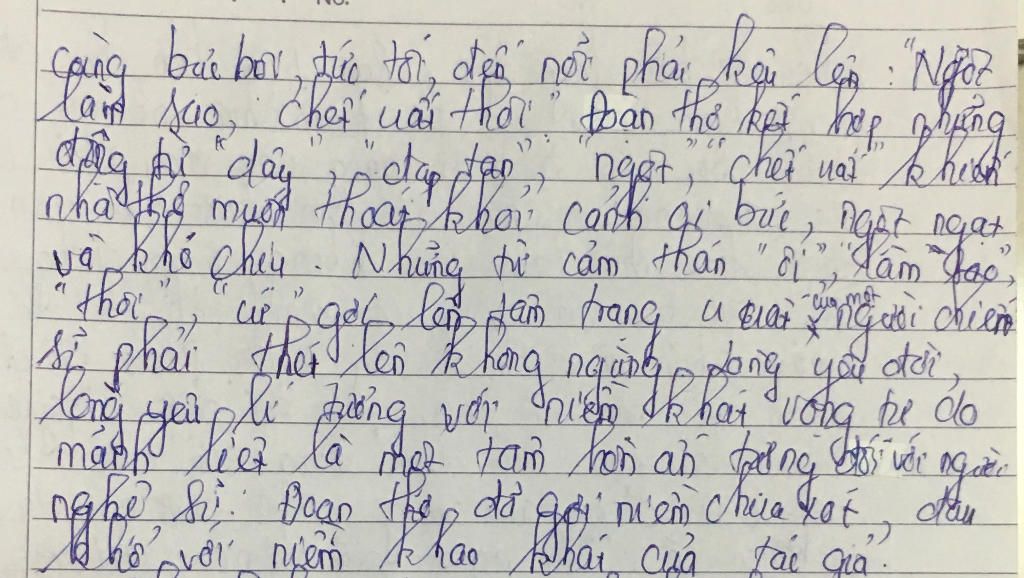 càng bức bối, tức tối, đến nỗi phải kêu lên: "Ngột
làm sao, chết uất thôi" Đoạn thơ kết hợp những
động từ "dậy", "đạp tan", "ngột", "chết uất" khiến
nhà thơ muốn thoát khỏi cảnh gì bức, ngột ngạt
và khó chịu. Những từ cảm thán "ôi", "làm sao",
"thôi", "cứ" gợi lên tâm trạng u uất của một người chiến
sĩ phải thét lên không ngừng, lòng yêu đời,
lòng yêu lí tưởng với niềm khát vọng tự do
mãnh liệt là một tâm hồn ấn tượng đối với người
nghệ sĩ. Đoạn thơ đã gợi niềm chua xót, đau
khổ với niềm khao khát của tác giả.